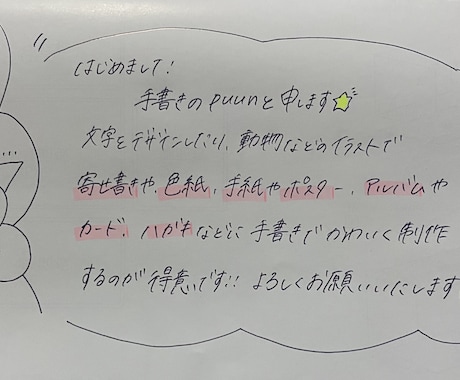 はじめまして!
手書きのpuunと申します☆
文字をデザインしたり、動物などのイラストで
寄せ書きや、色紙、手紙やポスター、アルバムや
カード、ハガキなどに手書きでかわいく制作
するのが得意です!! よろしくお願いいたします